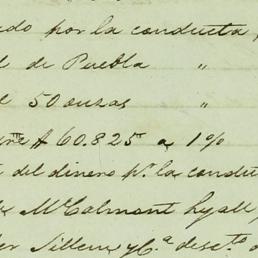 do por la conducta
de Puebla "
50 onzas "
$ 60.825 a 1%
del dinero pr. la condu
McCalmont Lyall
Sillem y Ca. desto